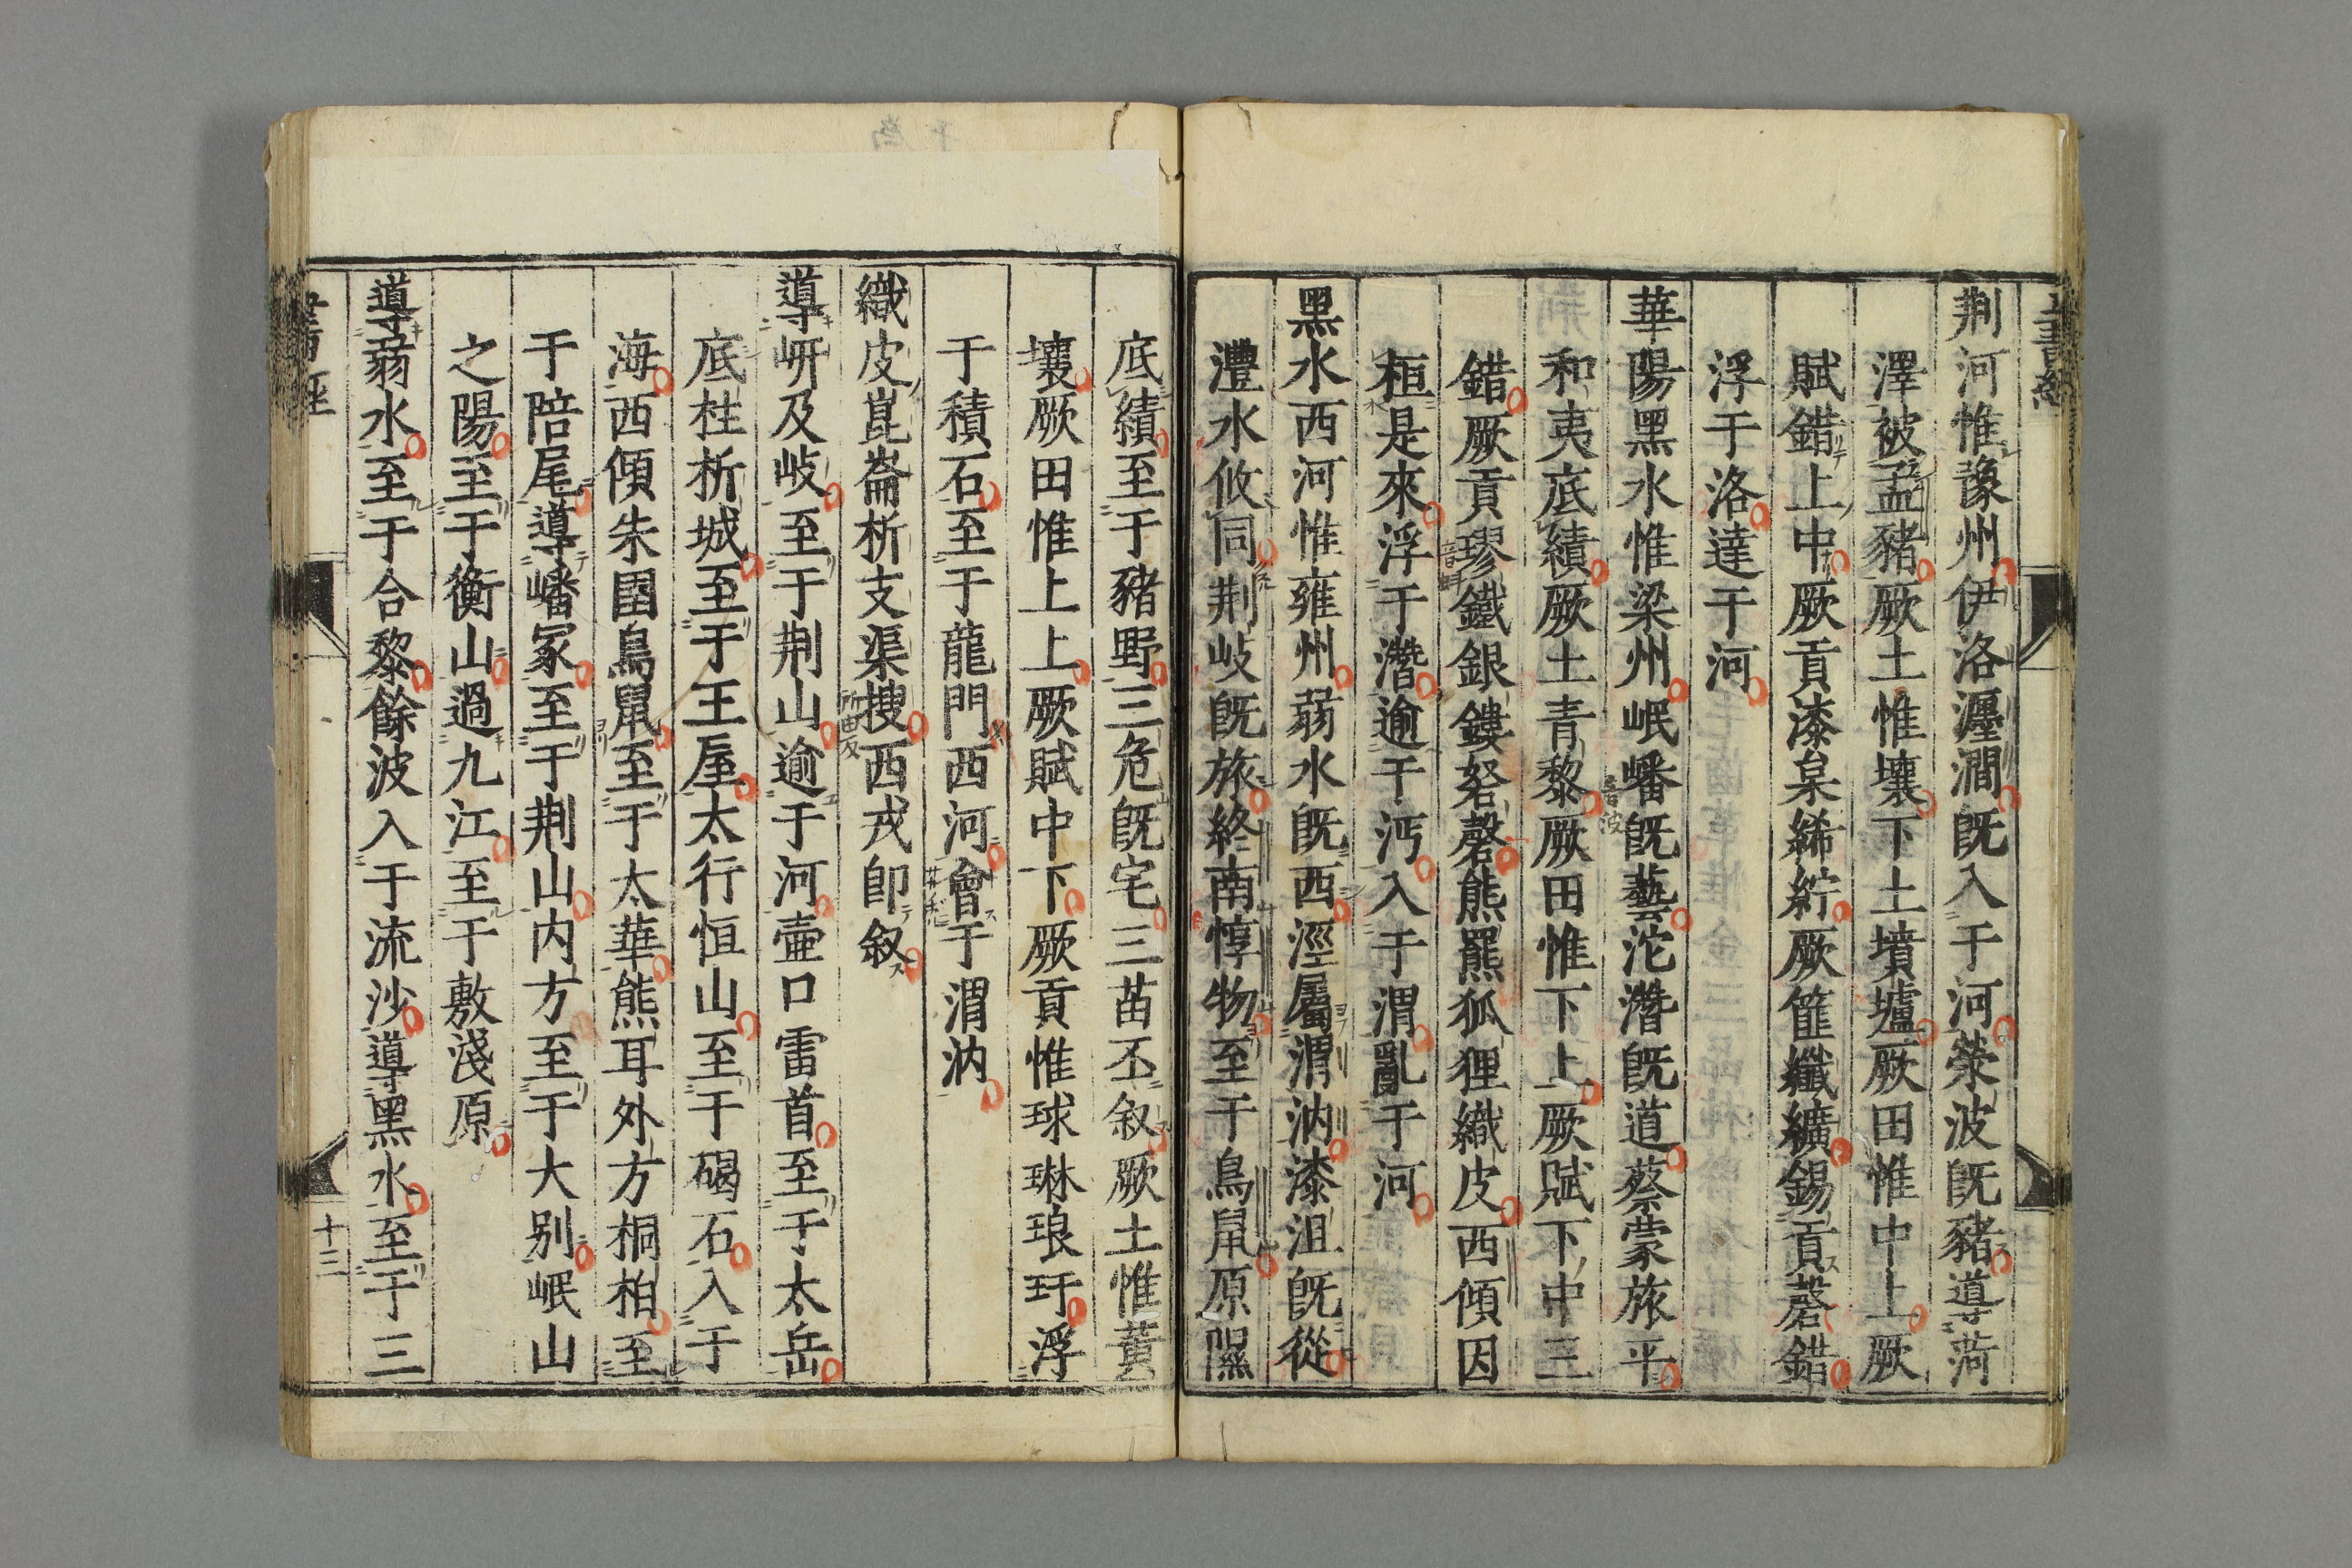 書經
荆河惟豫州伊洛瀍澗旣入于河滎波旣豬導菏
澤被孟豬厥土惟壤下土墳壚厥田惟中上厥
賦錯上中厥貢漆枲絺紵厥篚纖纊錫貢磬錯
浮于洛達于河
華陽黑水惟梁州岷嶓旣藝沱潛旣道蔡蒙旅平
和夷底績厥土青黎厥田惟下上厥賦下中三
錯厥貢璆鐵銀鏤砮磬熊羆狐狸織皮西傾因
桓是來浮于潛逾于沔入于渭亂于河
黑水西河惟雍州弱水旣西涇屬渭汭漆沮旣從
灃水攸同荆岐旣旅終南惇物至于鳥鼠原隰
底績至于豬野三危旣宅三苗丕叙厥土惟黃
壤厥田惟上上厥賦中下厥貢惟球琳琅玕浮
于積石至于龍門西河會于渭汭
織皮崑崙析支渠搜西戎卽叙
導岍及岐至于荆山逾于河壷口雷首至于太岳
底柱析城至于王屋太行恒山至于碣石入于
海西傾朱圉鳥鼠至于太華熊耳外方桐柏至
于陪尾導嶓冢至于荆山内方至于大别岷山
之陽至于衡山過九江至于敷淺原
導弱水至于合黎餘波入于流沙導黑水至于三
書經
十三